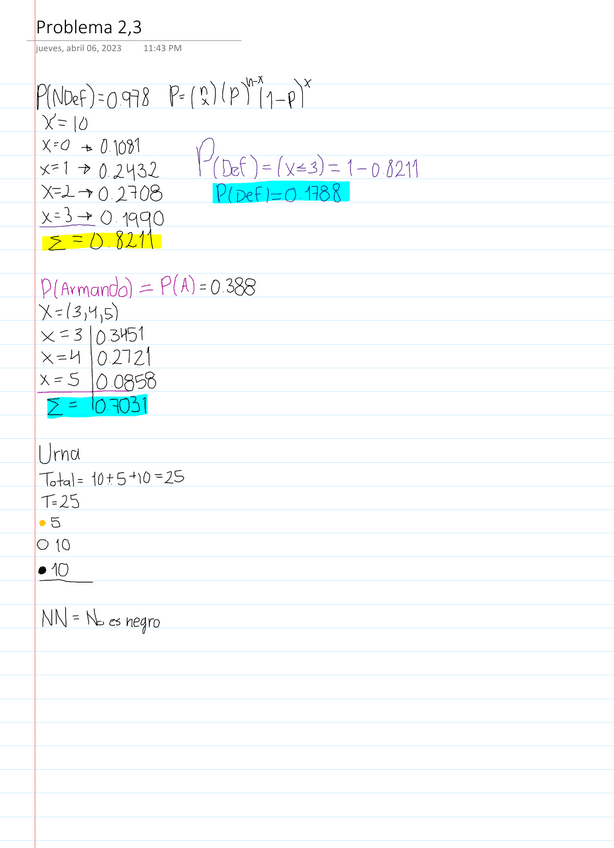 Problema 2,3
jueves, abril 06, 2023 11:43 PM
P(NDef)=0.978 P=(n x)(p)^n-x (1-p)^x
X=10
X=0 → 0.1081
X=1 → 0.2432
X=2 → 0.2708
X=3 → 0.1990
Σ = 0.8211
P(Def)=(x≤3)=1-0.8211
P(Def)=0.1788
P(Armando)=P(A)=0.388
X=(3,4,5)
X=3 0.3451
X=4 0.2721
X=5 0.0858
Σ = 0.7031
Urna
Total= 10+5+10=25
T=25
5
10
10
NN = No es negro